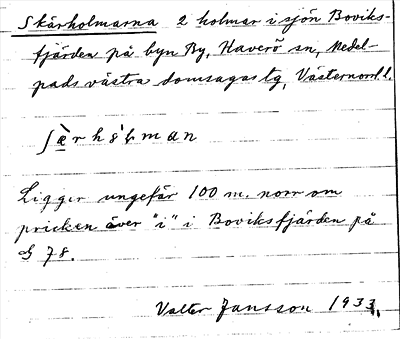 Skärholmarna 2 holmar i sjön Boviks-
fjärden på byn By, Haverö sn, Medel-
pads västra domsagas tg, Västernorrl. l.
Ligger ungefär 100 m. norr om
pricken över "i" i Boviksfjärden på
78.
Valter Jansson 1933.